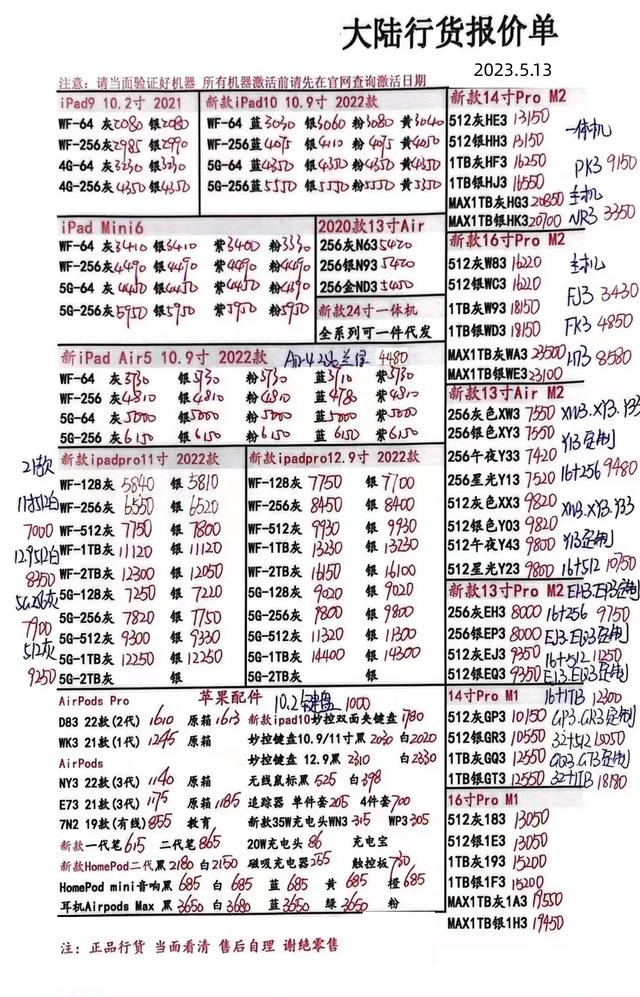 大陆行货报价单
2023.5.13
注意：请当面验证好机器 所有机器激活前请先在官网查询激活日期
iPad9 10.2寸 2021
WF-64 灰2080 银2080
WF-256灰2985 银2990
4G-64 灰3230 银3230
4G-256 灰4350 银4350
新款iPad10 10.9寸 2022款
WF-64 蓝3030 银3060 粉3080 黄3040
WF-256蓝4075 银4110 粉4075 黄4050
5G-64 蓝4350 银4350 粉4350 黄4350
5G-256蓝5550 银5550 粉5550 黄5350
iPad Mini6
WF-64 灰3410 银3410 紫3400 粉3330
WF-256灰4490 银4490 紫4490 粉4490
5G-64 灰4450 银4450 紫4450 粉4390
5G-256 灰5950 银5950 紫5950 粉5950
2020款13寸Air
256灰N63 5420
256银N93 5420
256金ND3 5450
新款24寸一体机
全系列可一件代发
新iPad Air5 10.9寸 2022款 4480
WF-64 灰3730 银3730 粉3730 蓝3710 紫3730
WF-256 灰4810 银4810 粉4810 蓝4780 紫4810
5G-64 灰5000 银5000 粉5000 蓝5000 紫5000
5G-256 灰6150 银6150 粉6150 蓝6150 紫6150
新款ipadpro11寸 2022款
WF-128灰 5840 银 5810
WF-256灰 6550 银 6520
WF-512灰 7750 银 7800
WF-1TB灰 11120 银 11120
WF-2TB灰 12300 银 12050
5G-128灰 7250 银 7220
5G-256灰 7820 银 7750
5G-512灰 9300 银 9330
5G-1TB灰 12250 银 12250
5G-2TB灰 银
21款
11寸512白
7000
12.9512白
8350
5G256灰
7900
512灰
9250
新款ipadpro12.9寸 2022款
WF-128灰 7750 银 7700
WF-256灰 8450 银 8400
WF-512灰 9930 银 9930
WF-1TB灰 13230 银 13230
WF-2TB灰 16150 银 16100
5G-128灰 9020 银 9020
5G-256灰 9800 银 9800
5G-512灰 11320 银 11300
5G-1TB灰 14400 银 14300
5G-2TB灰 银
AirPods Pro 苹果配件 10.2键盘 1000
D83 22款(2代) 1610 原箱1613 新款ipad10妙控双面夹键盘1780
WK3 21款(1代) 1245 原箱 妙控键盘10.9/11寸黑2030 白2020
AirPods 妙控键盘 12.9黑2310 白2330
NY3 22款(3代) 1140 原箱 无线鼠标黑525 白398
E73 21款(3代) 1175 原箱1185 追踪器 单件套205 4件套700
7N2 19款(有线)855 教育 新款35W充电头WN3 315 WP3 305
新款一代笔615 二代笔865 20W充电头86 充电宝
新款HomePod二代黑2180 白2150 磁吸充电器255 触控板730
HomePod mini音响黑 685 白 685 蓝 685 黄 685 橙685
耳机Airpods Max 黑3650 白3680 蓝3650 绿3650 粉
注：正品行货 当面看清 售后自理 谢绝零售
新款14寸Pro M2
512灰HE3 13150
512银HH3 13150
1TB灰HF3 16250
1TB银HJ3 16550
MAX1TB灰HG3 20850
MAX1TB银HK3 20700
一体机
PK3 9150
主机
NR3 3350
新款16寸Pro M2
512灰W83 16220
512银WC3 16220
1TB灰W93 18150
1TB银WD3 18150
MAX1TB灰WA3 23500
MAX1TB银WE3 23100
主机
FJ3 3430
FK3 4850
H13 8580
新款13寸Air M2
256灰色XW3 7550 XW3.XY3.Y33
256银色XY3 7550 Y13定制
256午夜Y33 7420
256星光Y13 7520 16+256 9480
512灰色XX3 9820
512银色Y03 9820 XW3.XY3.Y33
512午夜Y43 9800 Y13定制
512星光Y23 9800 16+512 10750
新款13寸Pro M2 EH3.EP3定制
256灰EH3 8000 16+256 9750
256银EP3 8000 EJ3.EQ3定制
512灰EJ3 9350 16+512 11250
512银EQ3 9350 EJ3.EQ3定制
14寸Pro M1 16+1TB 12300
512灰GP3 10150 GP3.GR3定制
512银GR3 10550 32+512 13050
1TB灰GQ3 12550 GQ3.GT3定制
1TB银GT3 12550 32+1TB 18180
16寸Pro M1
512灰183 13050
512银1E3 13050
1TB灰193 15200
1TB银1F3 15200
MAX1TB灰1A3 19550
MAX1TB银1H3 19450